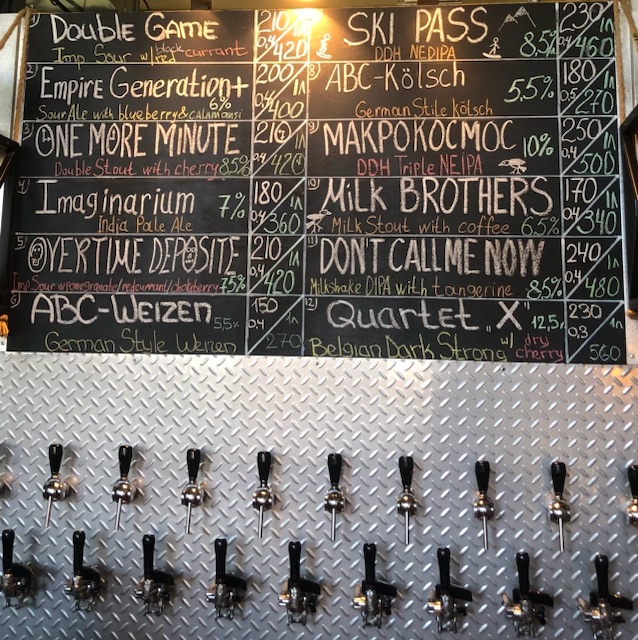 1) Double Game 210 1л
black
Imp Sour w/red currant 0,4 420
2) Empire Generation+ 200 1л
6%
Sour Ale with blueberry & calamansi 0,4 400
3) ONE MORE MINUTE 210 1л
Double Stout with cherry 8,5% 0,4 420
4) Imaginarium 7% 180 1л
India Pale Ale 0,4 360
5) OVERTIME DEPOSITE 210 1л
Imp Sour w/pomegranate/redcurrant/chokeberry 7,5% 0,4 420
6) ABC-WEIZEN 5,5% 150 1л
German Style Weizen 0,4 270
SKI PASS 230 1л
DDH NEDIPA 8,5% 0,4 460
8) ABC-Kölsch 5,5% 180 1л
German Stile kölsch 0,5 270
9) МАКРОКОСМОС 10% 250 1л
DDH Triple NEIPA 0,4 500
10) Milk BROTHERS 170 1л
Milk Stout with coffee 6,5% 0,4 340
11) DON'T CALL ME NOW 240 1л
Milkshake DIPA with tangerine 8,5% 0,4 480
12) Quartet „X" 12,5% 230 1л
Belgian Dark Strong w/ dry cherry 0,3 560